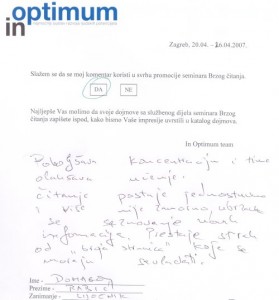 in optimum
Zagreb, 20.04. - 26.04.2007.
Slažem se da se moj komentar koristi u svrhu promocije seminara Brzog čitanja.
DA NE
Najljepše Vas molimo da svoje dojmove sa službenog dijela seminara Brzog
čitanja zapišete ispod, kako bismo Vaše impresije uvrstili u katalog dojmova.
In Optimum team
Poboljšava koncentraciju i time
olakšava učenje.
Čitanje postaje jednostavno
i više nije
se
informacije. Prestaje strah
od koje se
moraju savladati.
Ime -
Prezime -
Zanimanje -